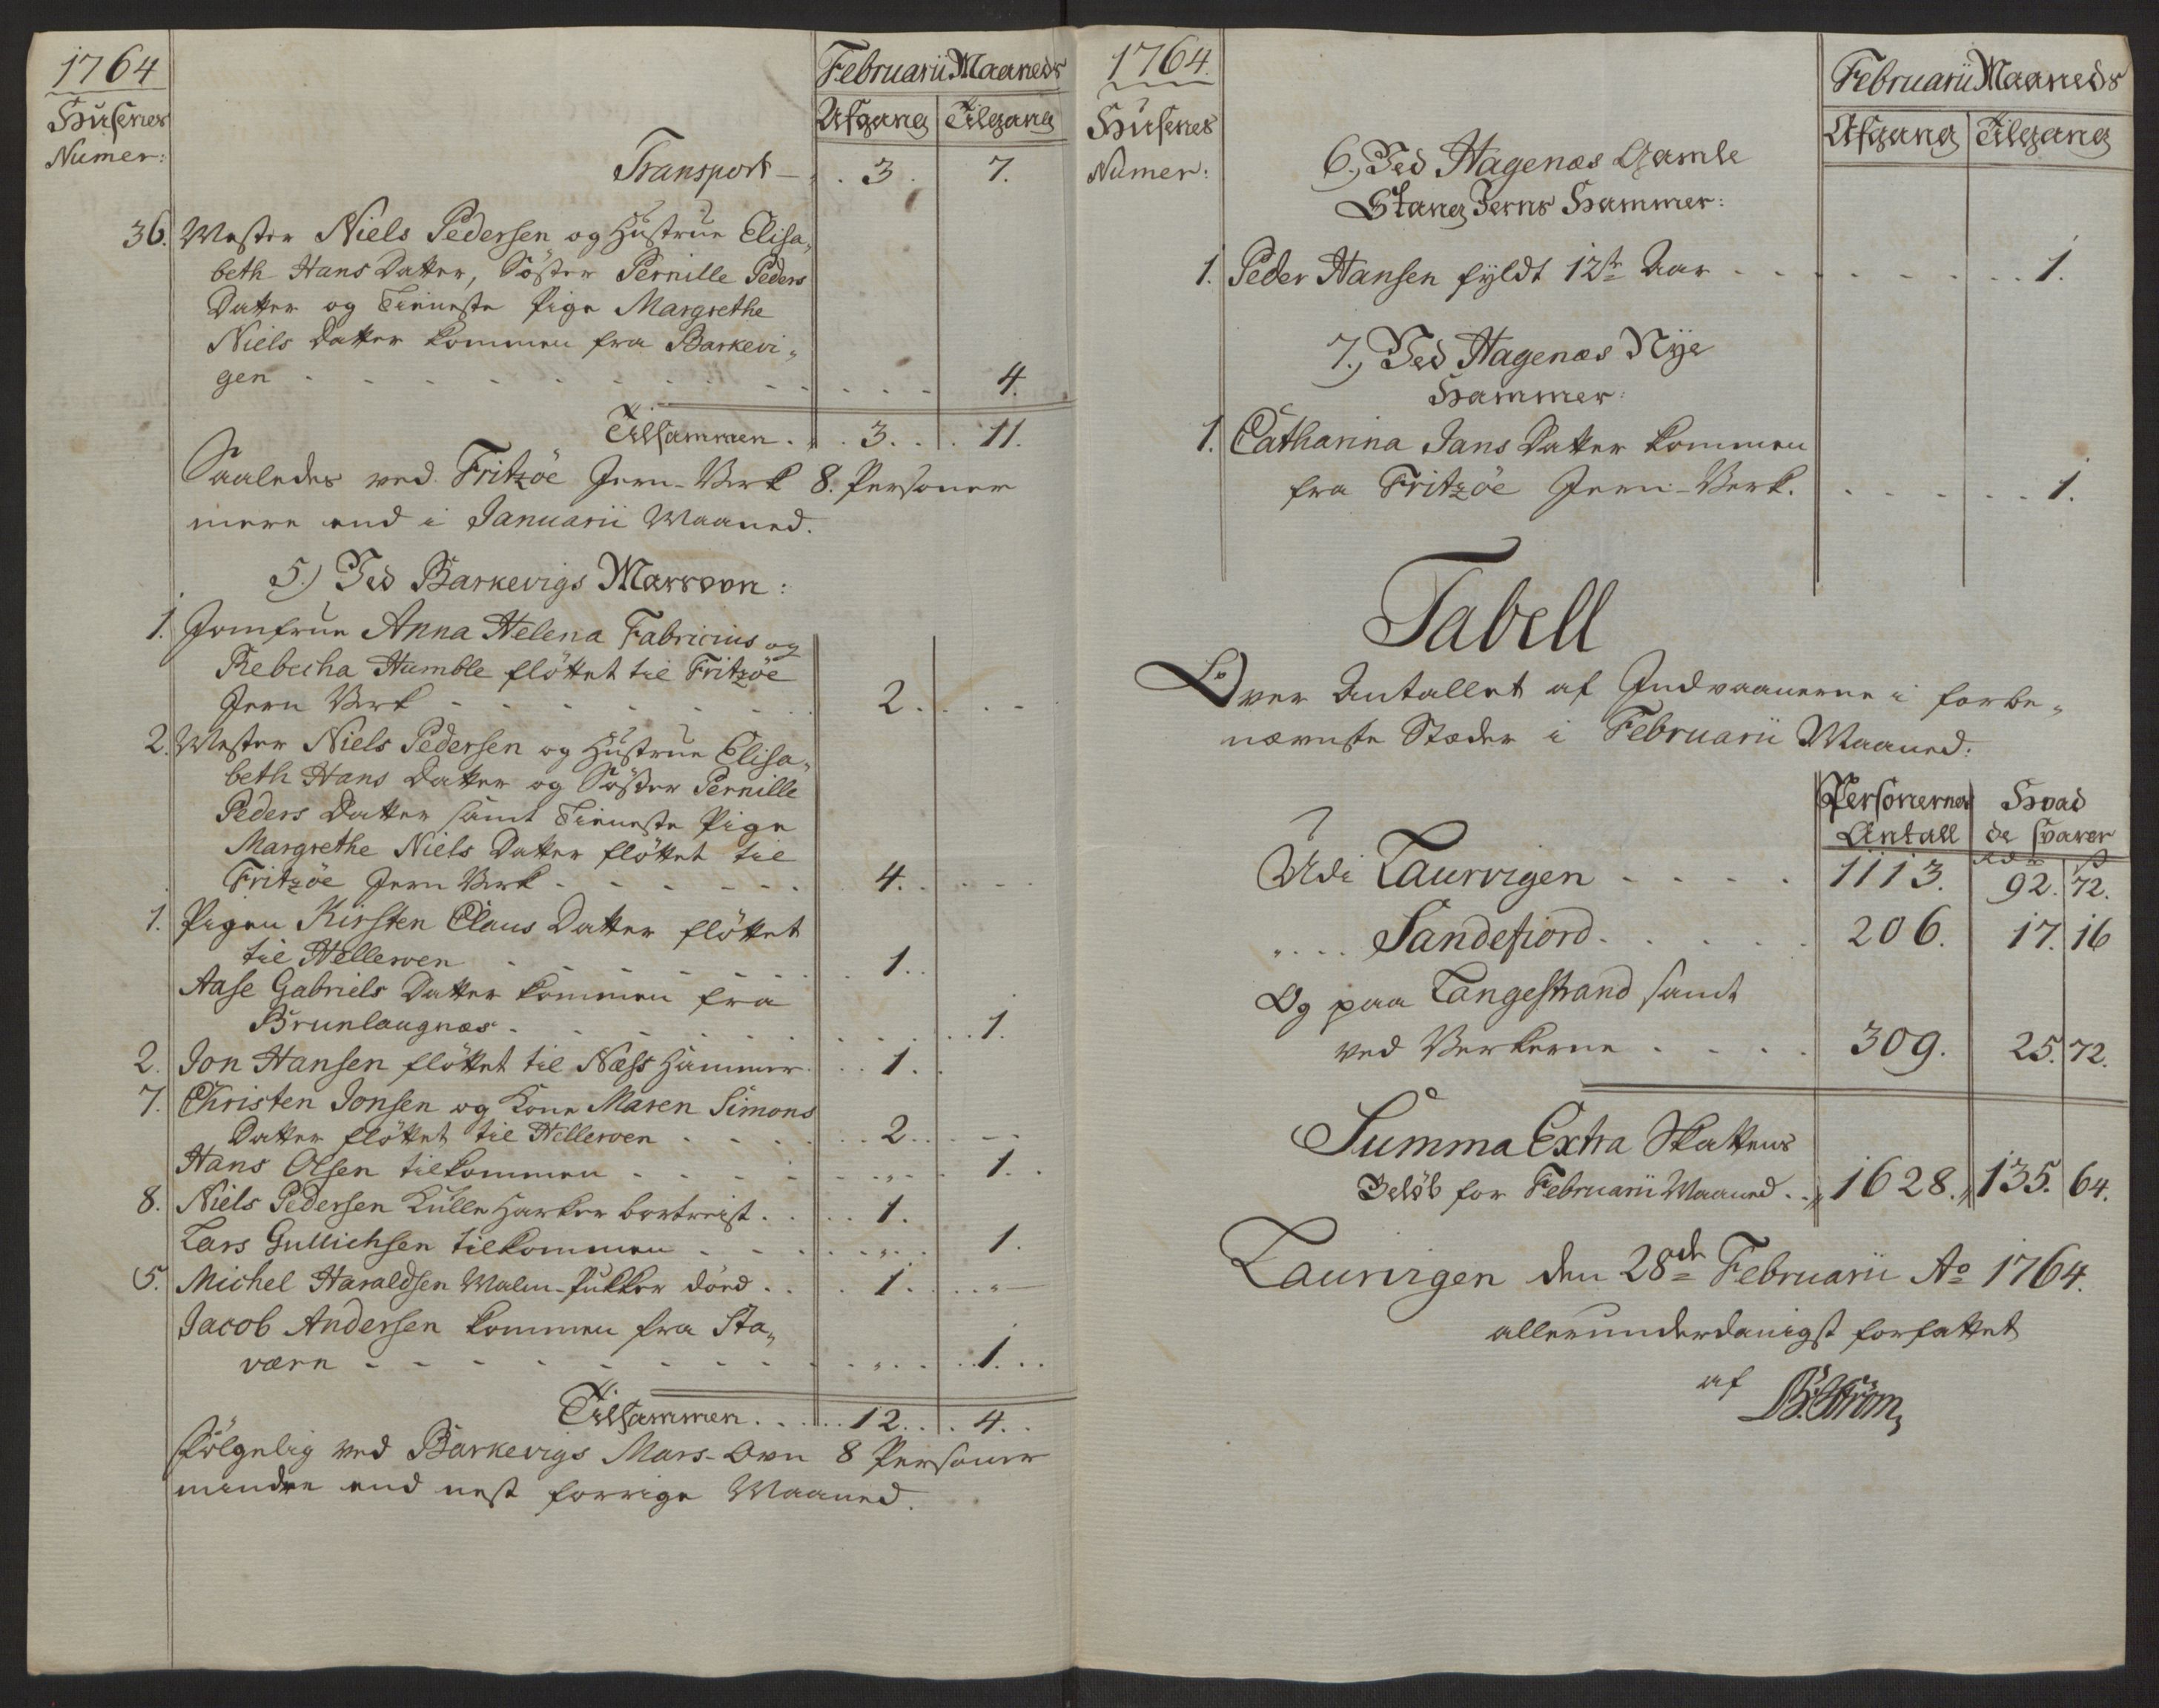 1764
Februarii Maaneds
Husenes
Numer:
Afgang Tilgang
Transport — 3. 7.
36. Mester Niels Pedersen og Hustrue Elisa„
beth Hans Datter, Söster Pernille Peders
Datter og Tieneste Pige Margrethe
Niels Datter kommen fra Barkevi„
gen - - - - 4.
Tilsammen. 3. 11.
Saaledes ved Fritzöe Jern-Verk 8. Personer
mere end i Januarii Maaned.
5.) Ved Barkevigs Marsovn:
1. Jomfrue Anna Helena Fabricius og
Rebecha Humble flöttet til Fritzöe
Jern Verk - - - - 2.
2. Mester Niels Pedersen og Hustrue Elisa„
beth Hans Datter og Söster Pernille
Peders Datter samt Tieneste Pige
Margrethe Niels Datter flöttet til
Fritzöe Jern Verk - - - - 4.
1. Pigen Kirsten Claus Datter flöttet
til Helleroen - - - - 1.
Aase Gabriels Datter kommen fra
Brunlaugnæs - - - - 1.
2. Jon Hansen flöttet til Næss Hammer 1.
7. Christen Jonsen og Kone Maren Simons
Datter flöttet til Helleroen - - - 2.
Hans Olsen tilkommen - - - „ 1.
8. Niels Pedersen Kulle Harker bortreist. 1.
Lars Gullichsen tilkommen - - - „ 1.
5. Michel Haraldsen Malm-Pukker döed. 1. „
Jacob Andersen kommen fra Sta„
værn - - - - „ 1.
Tilsammen. 12. 4.
Fölgelig ved Barkevigs Mars-Ovn 8 Personer
mindre end nest forrige Maaned.
1764.
Februarii Maaneds
Husenes
Numer:
Afgang Tilgang
6.) Ved Hagenæs Gamle
Stang Jerns Hammer:
1. Peder Hansen fyldt 12te Aar - - - 1.
7.) Ved Hagenæs Nye
Hammer:
1. Catharina Jans Datter kommen
fra Fritzöe Jern-Verk. - - - 1.
Tabell
Over Antallet af Indvaanerne i forbe„
nævnte Stæder i Februarii Maaned:
Personernes Hvad
Antall de svarer
Rdr ß
Udi Laurvigen - - - - 1113. 92. 72.
„ Sandefiord. 206. 17. 16
Og paa Langestrand samt
ved Verkerne - - - - 309. 25. 72.
Summa Extra Skattens
Belöb for Februarii Maaned. „ 1628. „ 135. 64.
Laurvigen den 28de Februarii Ao 1764.
allerunderdanigst forfattet
af
Ström